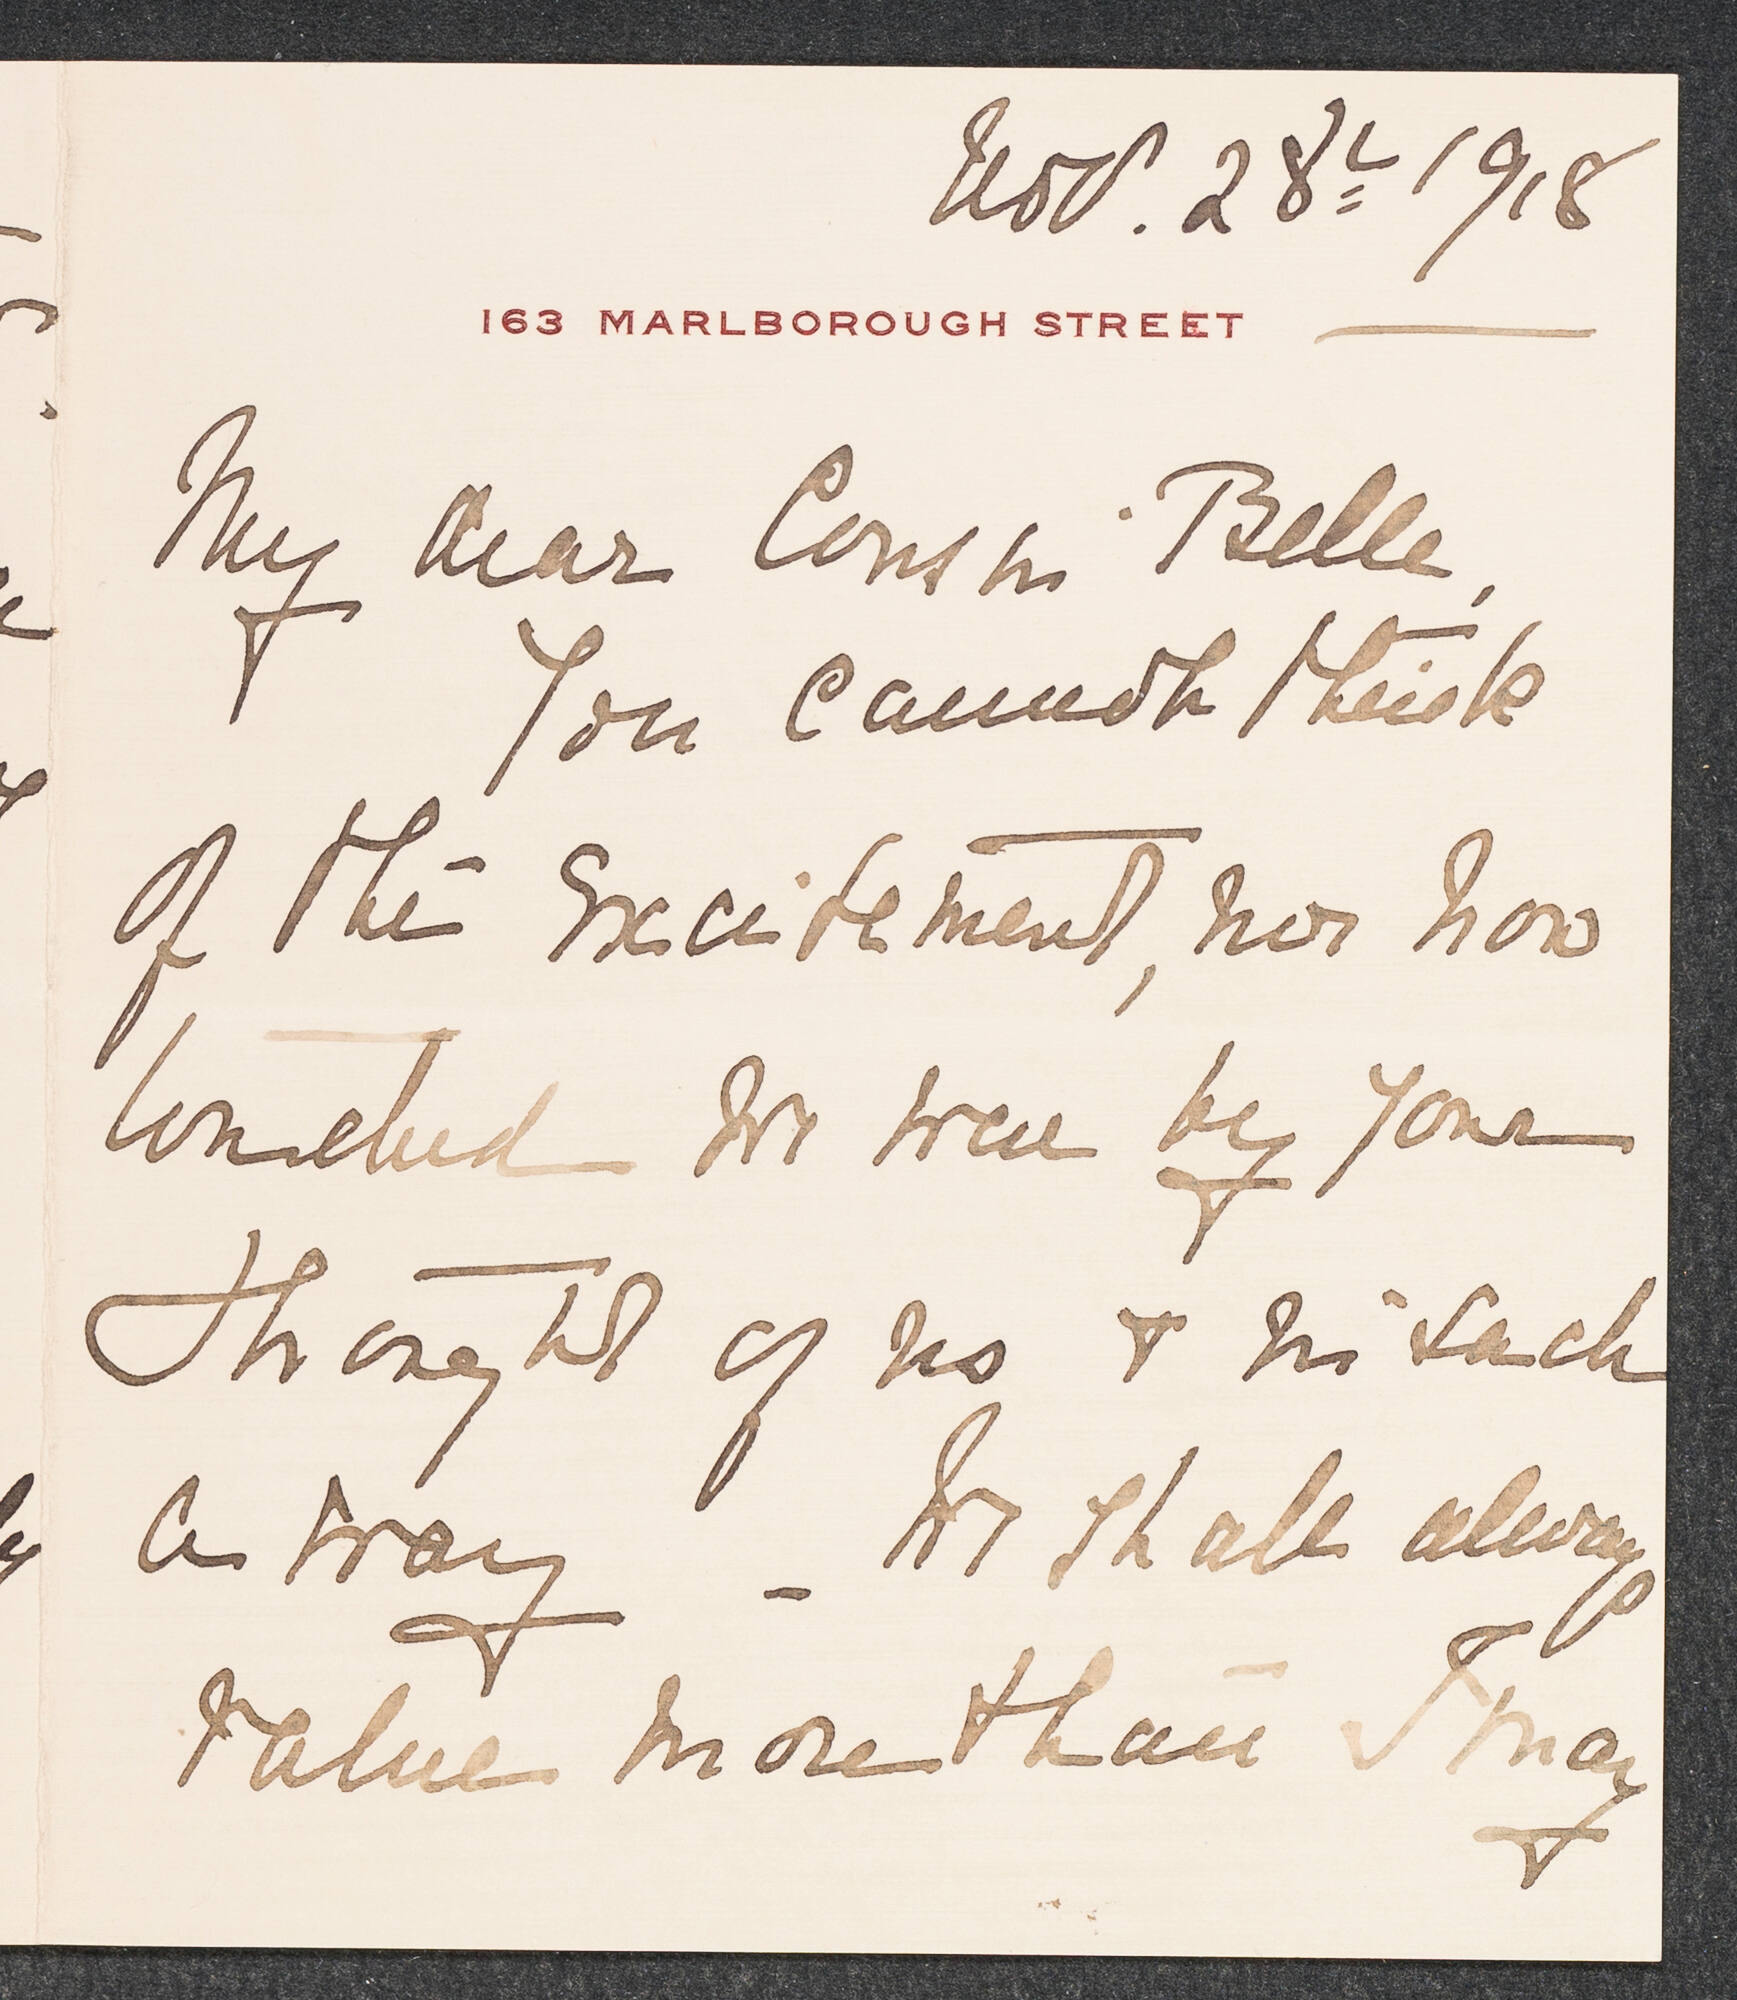 Nov. 28th 1918
163 MARLBOROUGH STREET
My dear Cousin Belle,
You cannot think
of the excitement, nor how
touched we were by your
thought of us & in such
a way - We shall always
value more than I may